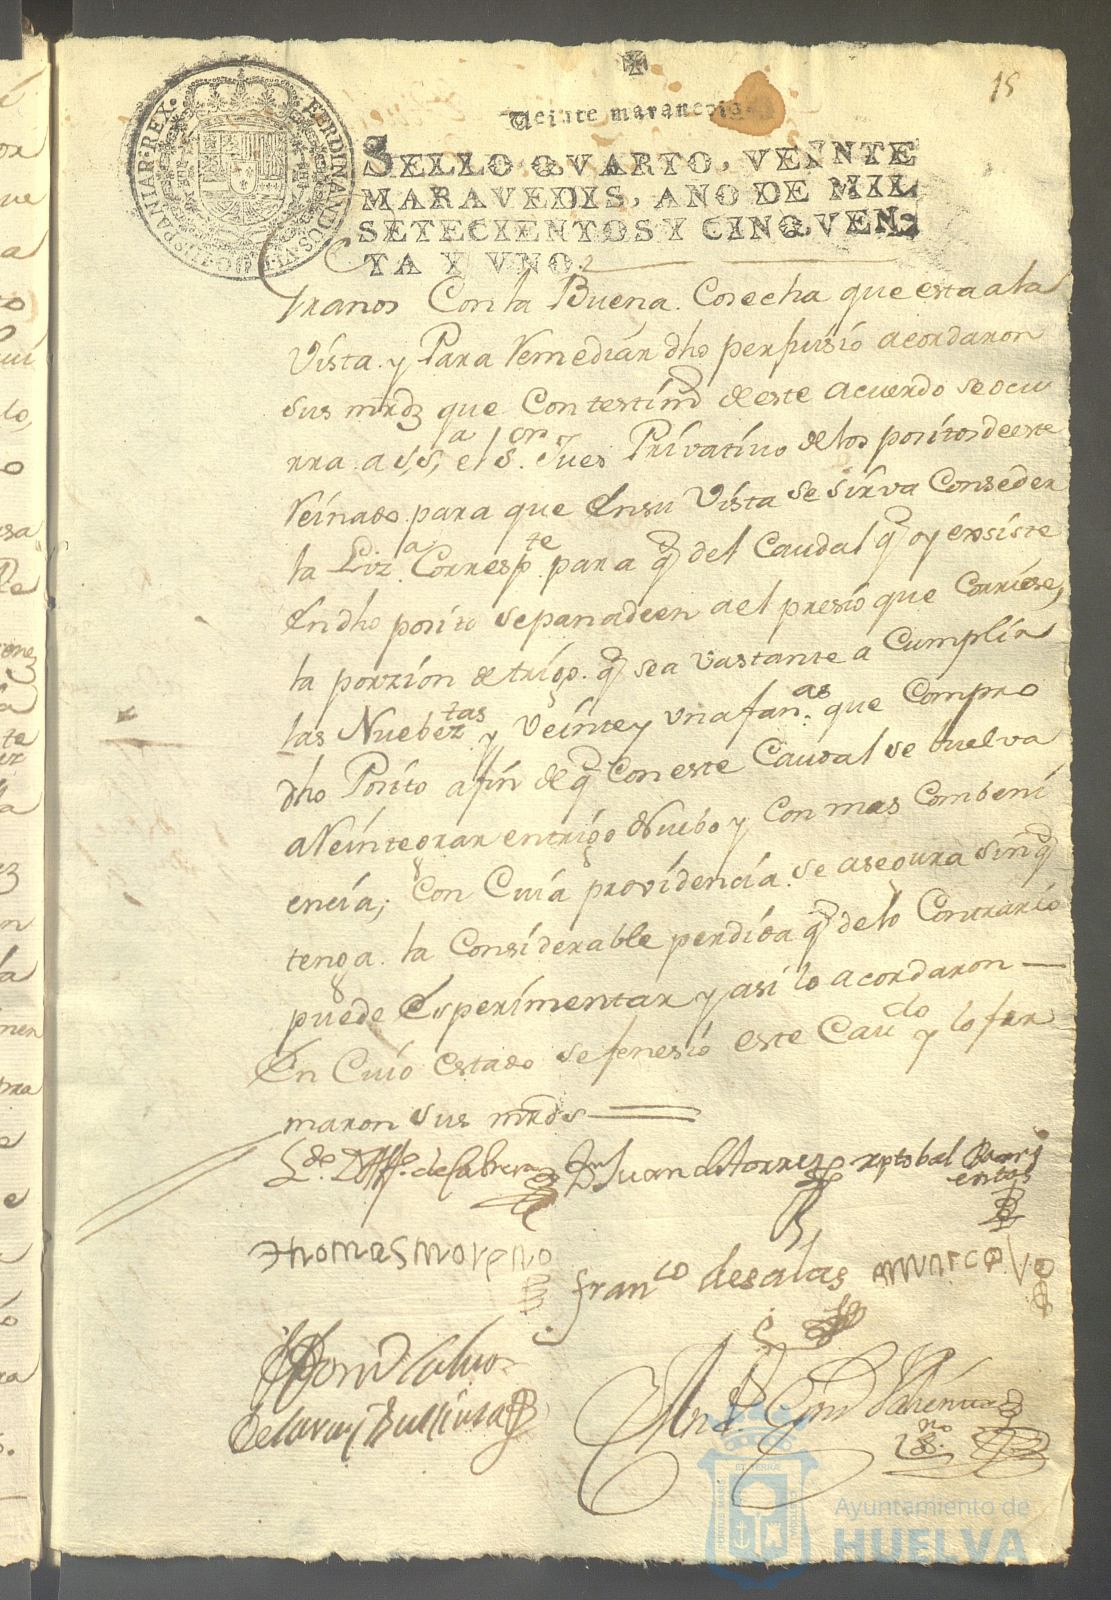 15
Veinte maravedis
SELLO QVARTO, VEINTE
MARAVEDIS, AÑO DE MIL
SETECIENTOS Y CINQVEN-
TA Y VNO.
FERDINANDUS VI D G HISPANIAR REX
tranos Con la Buena Cosecha que esta a la
Vista y Para Remediar dho perjuisio acordaron
sus mrds que Con testimo de este acuerdo se ocu
rra a SSa el Sor Jues Privativo de los positos de este
Reinado para que en su Vista se sirva Conseder
la Liza Correspte para q del Caudal q oy ensiste
en dho posito se panadeen a el presio que Corriese
la porzion de trigo q sea vastante a Cumplir
las Nuebeztas y Veinte y una fanas que Compro
dho Posito afin de q Con este Caudal se buelva
a Reintegrar en trigo Nuebo y Con mas Combeni
encia; Con Cuia providencia se asegura sin q
tenga la Considerable perdida q de lo Contrario
puede esperimentar y asi lo acordaron
En Cuio estado se fenesio este Caudo y lo fir
maron sus mrds
Ldo D Alfo de Cabrera Dn Juan de Torres xptobal Barri
entos
Thomas Moreno
Franco de Salas Marco
Calvo
Ayuntamiento de
HUELVA